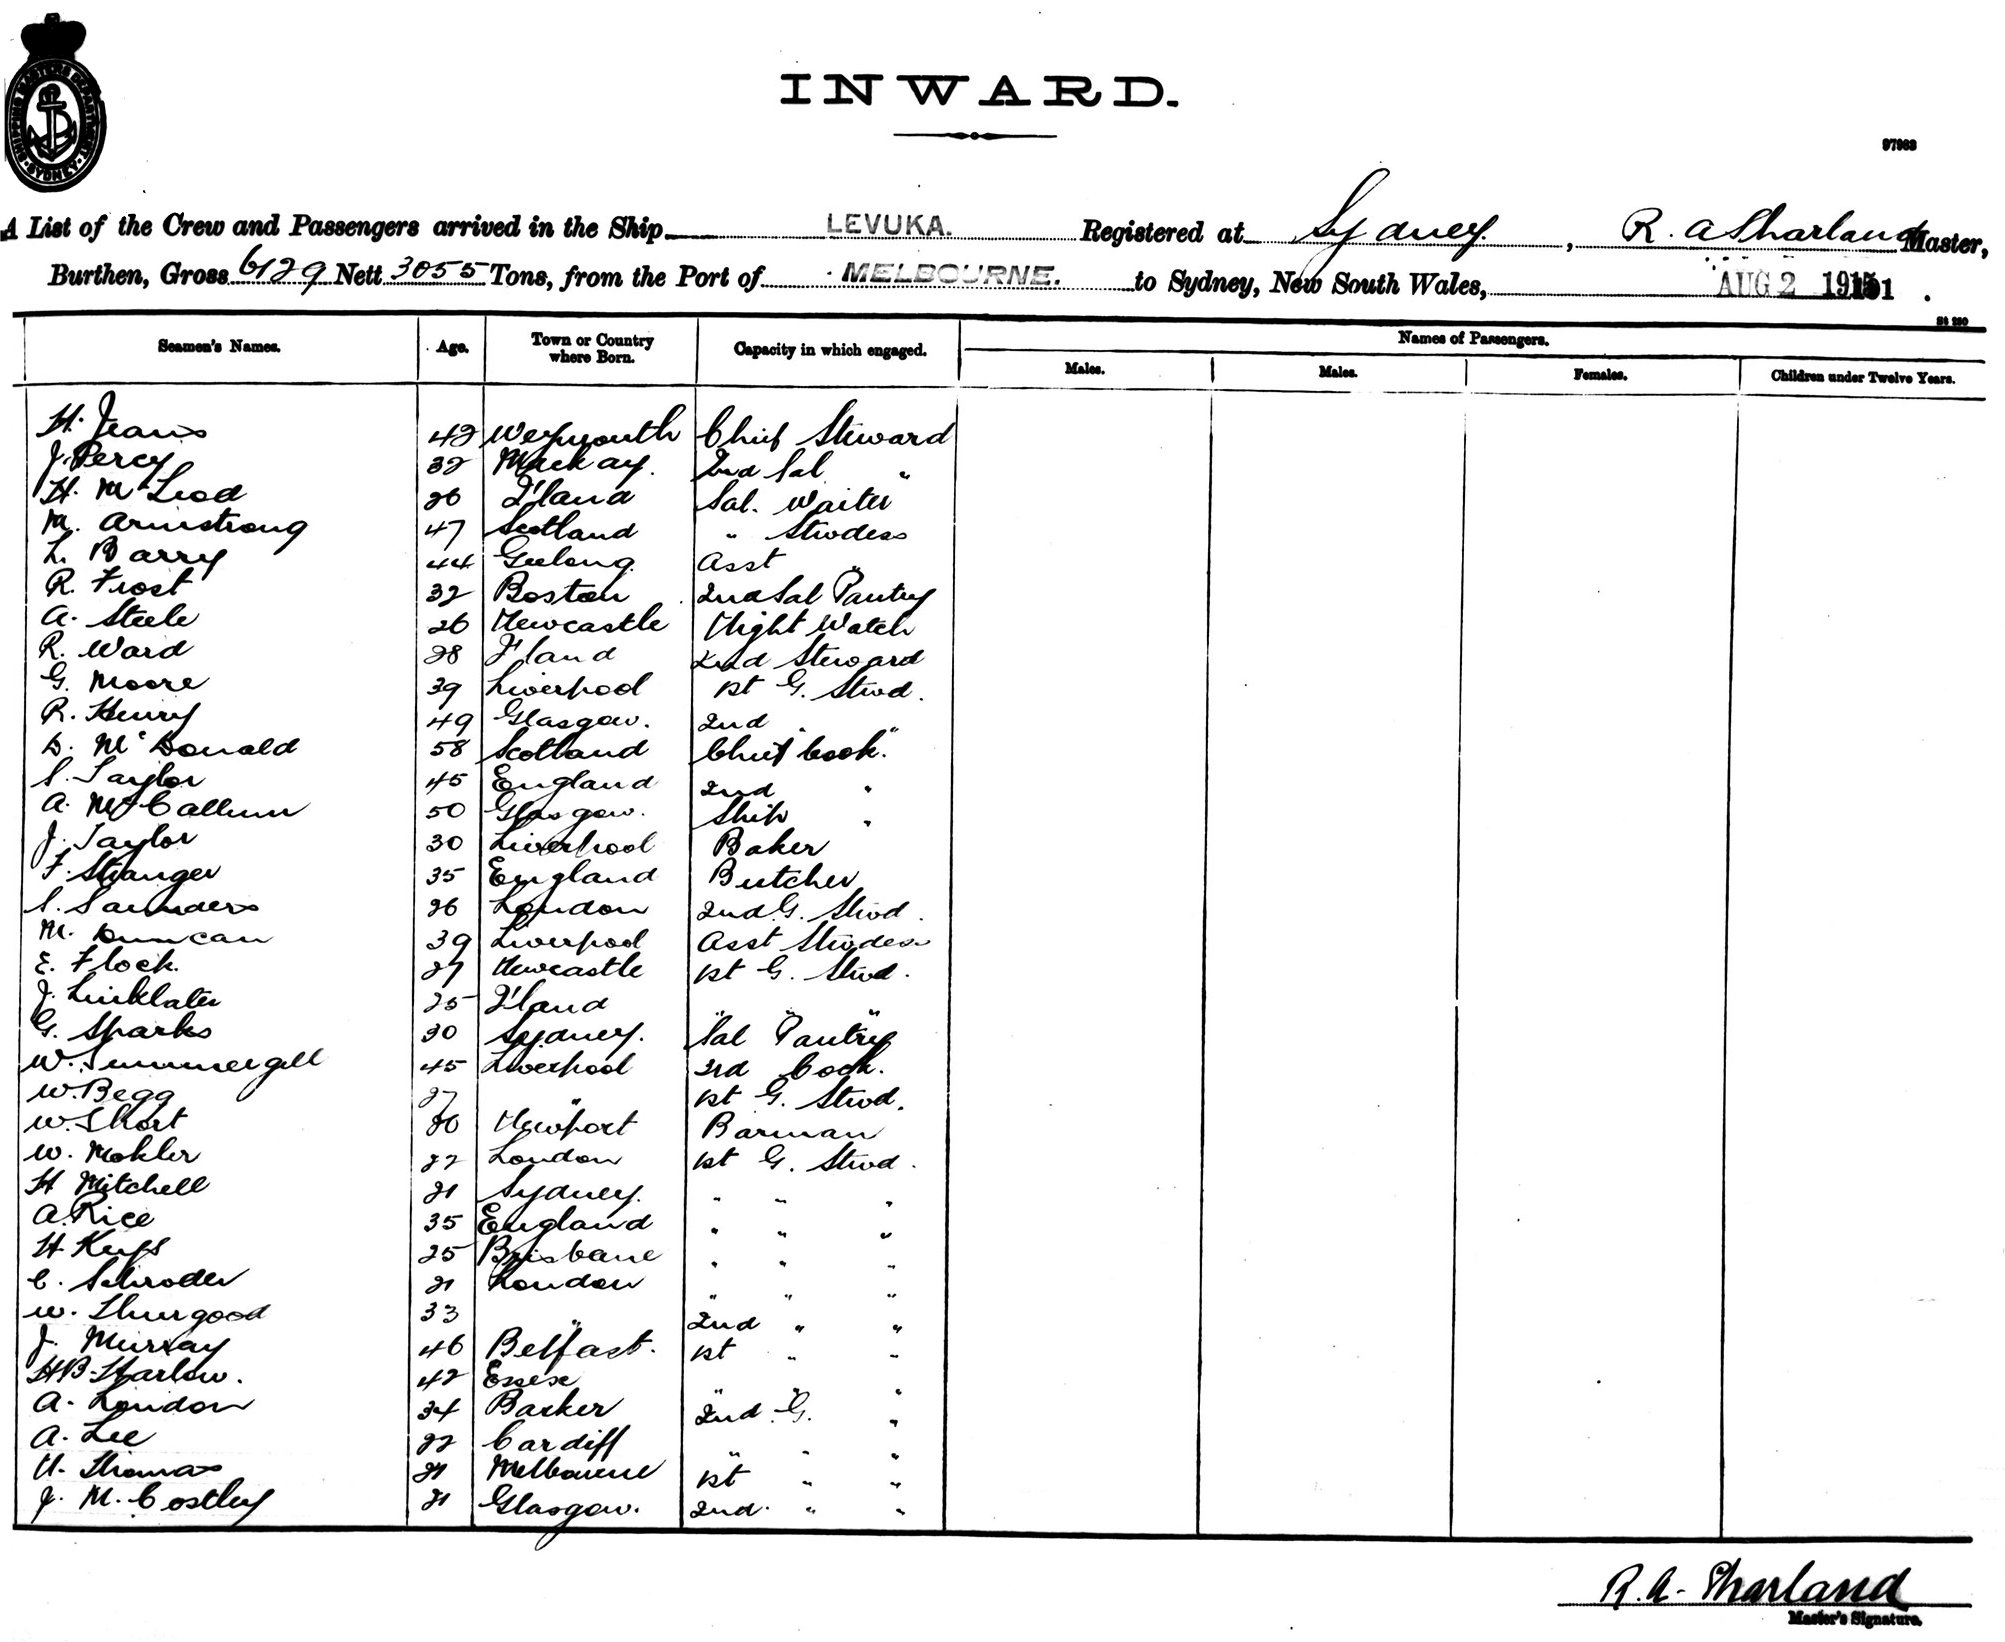 SHIPPING MASTERS DEPARTMENT. SYDNEY
INWARD.
97963
A List of the Crew and Passengers arrived in the Ship LEVUKA. Registered at Sydney, R. A Sharland Master,
Burthen, Gross 6129 Nett 3055 Tons, from the Port of MELBOURNE. to Sydney, New South Wales, AUG 2 1915
Seamen's Names. Age. Town or Country where Born. Capacity in which engaged. Names of Passengers.
Males. Males. Females. Children under Twelve Years.
H. Jeans 42 Weymouth Chief Steward
J. Percy 32 Mackay. 2nd Sal "
H. McLeod 26 Q'land Sal. Waiter
M. Armstrong 47 Scotland " Stwdess
L. Barry 44 Geelong Asst "
R. Frost 32 Boston 2nd Sal Pantry
A. Steele 26 Newcastle Night Watch
R. Ward 28 I'land 2nd Steward
G. Moore 39 Liverpool 1st G. Stwd.
R. Henry 49 Glasgow. 2nd " "
D. McDonald 58 Scotland Chief Cook.
S. Taylor 45 England 2nd "
A. McCallum 50 Glasgow. Ship "
J. Taylor 30 Liverpool Baker
F. Stranger 35 England Butcher
S. Saunders 26 London 2nd G. Stwd.
M. Duncan 39 Liverpool Asst Stwdess
E. Flock. 27 Newcastle 1st G. Stwd.
J. Linklater 25 Q'land " " "
G. Sparks 30 Sydney. Sal Pantry
W. Summergill 45 Liverpool 3rd Cook.
W. Begg 27 " 1st G. Stwd.
W. Short 20 Newport Barman
W. Mohler 22 London 1st G. Stwd.
H Mitchell 21 Sydney. " " "
A. Rice 35 England " " "
H Keys 25 Brisbane " " "
C. Schroder 21 London " " "
W. Thurgood 33 " 2nd " "
J. Murray 46 Belfast. 1st " "
H B. Harlow. 42 Essex " " "
A. London 34 Barker 2nd. G. "
A. Lee 22 Cardiff " " "
H. Thomas 21 Melbourne 1st " "
J. M. Costley 21 Glasgow. 2nd. " "
R. A. Sharland
Master's Signature.